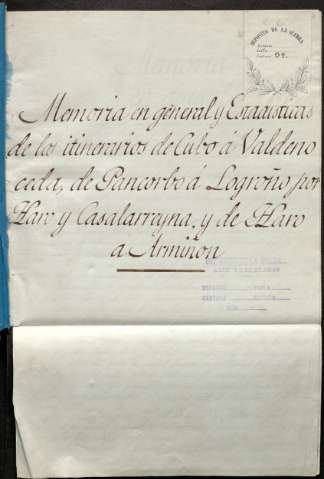 DEPOSITO DE LA GUERRA
Memoria en general y Estadisticas
de los itinerarios de Cubo á Valdeno
ceda, de Pancorbo á Logroño por
Haro y Casalarreyna, y de Haro
a Armiñon